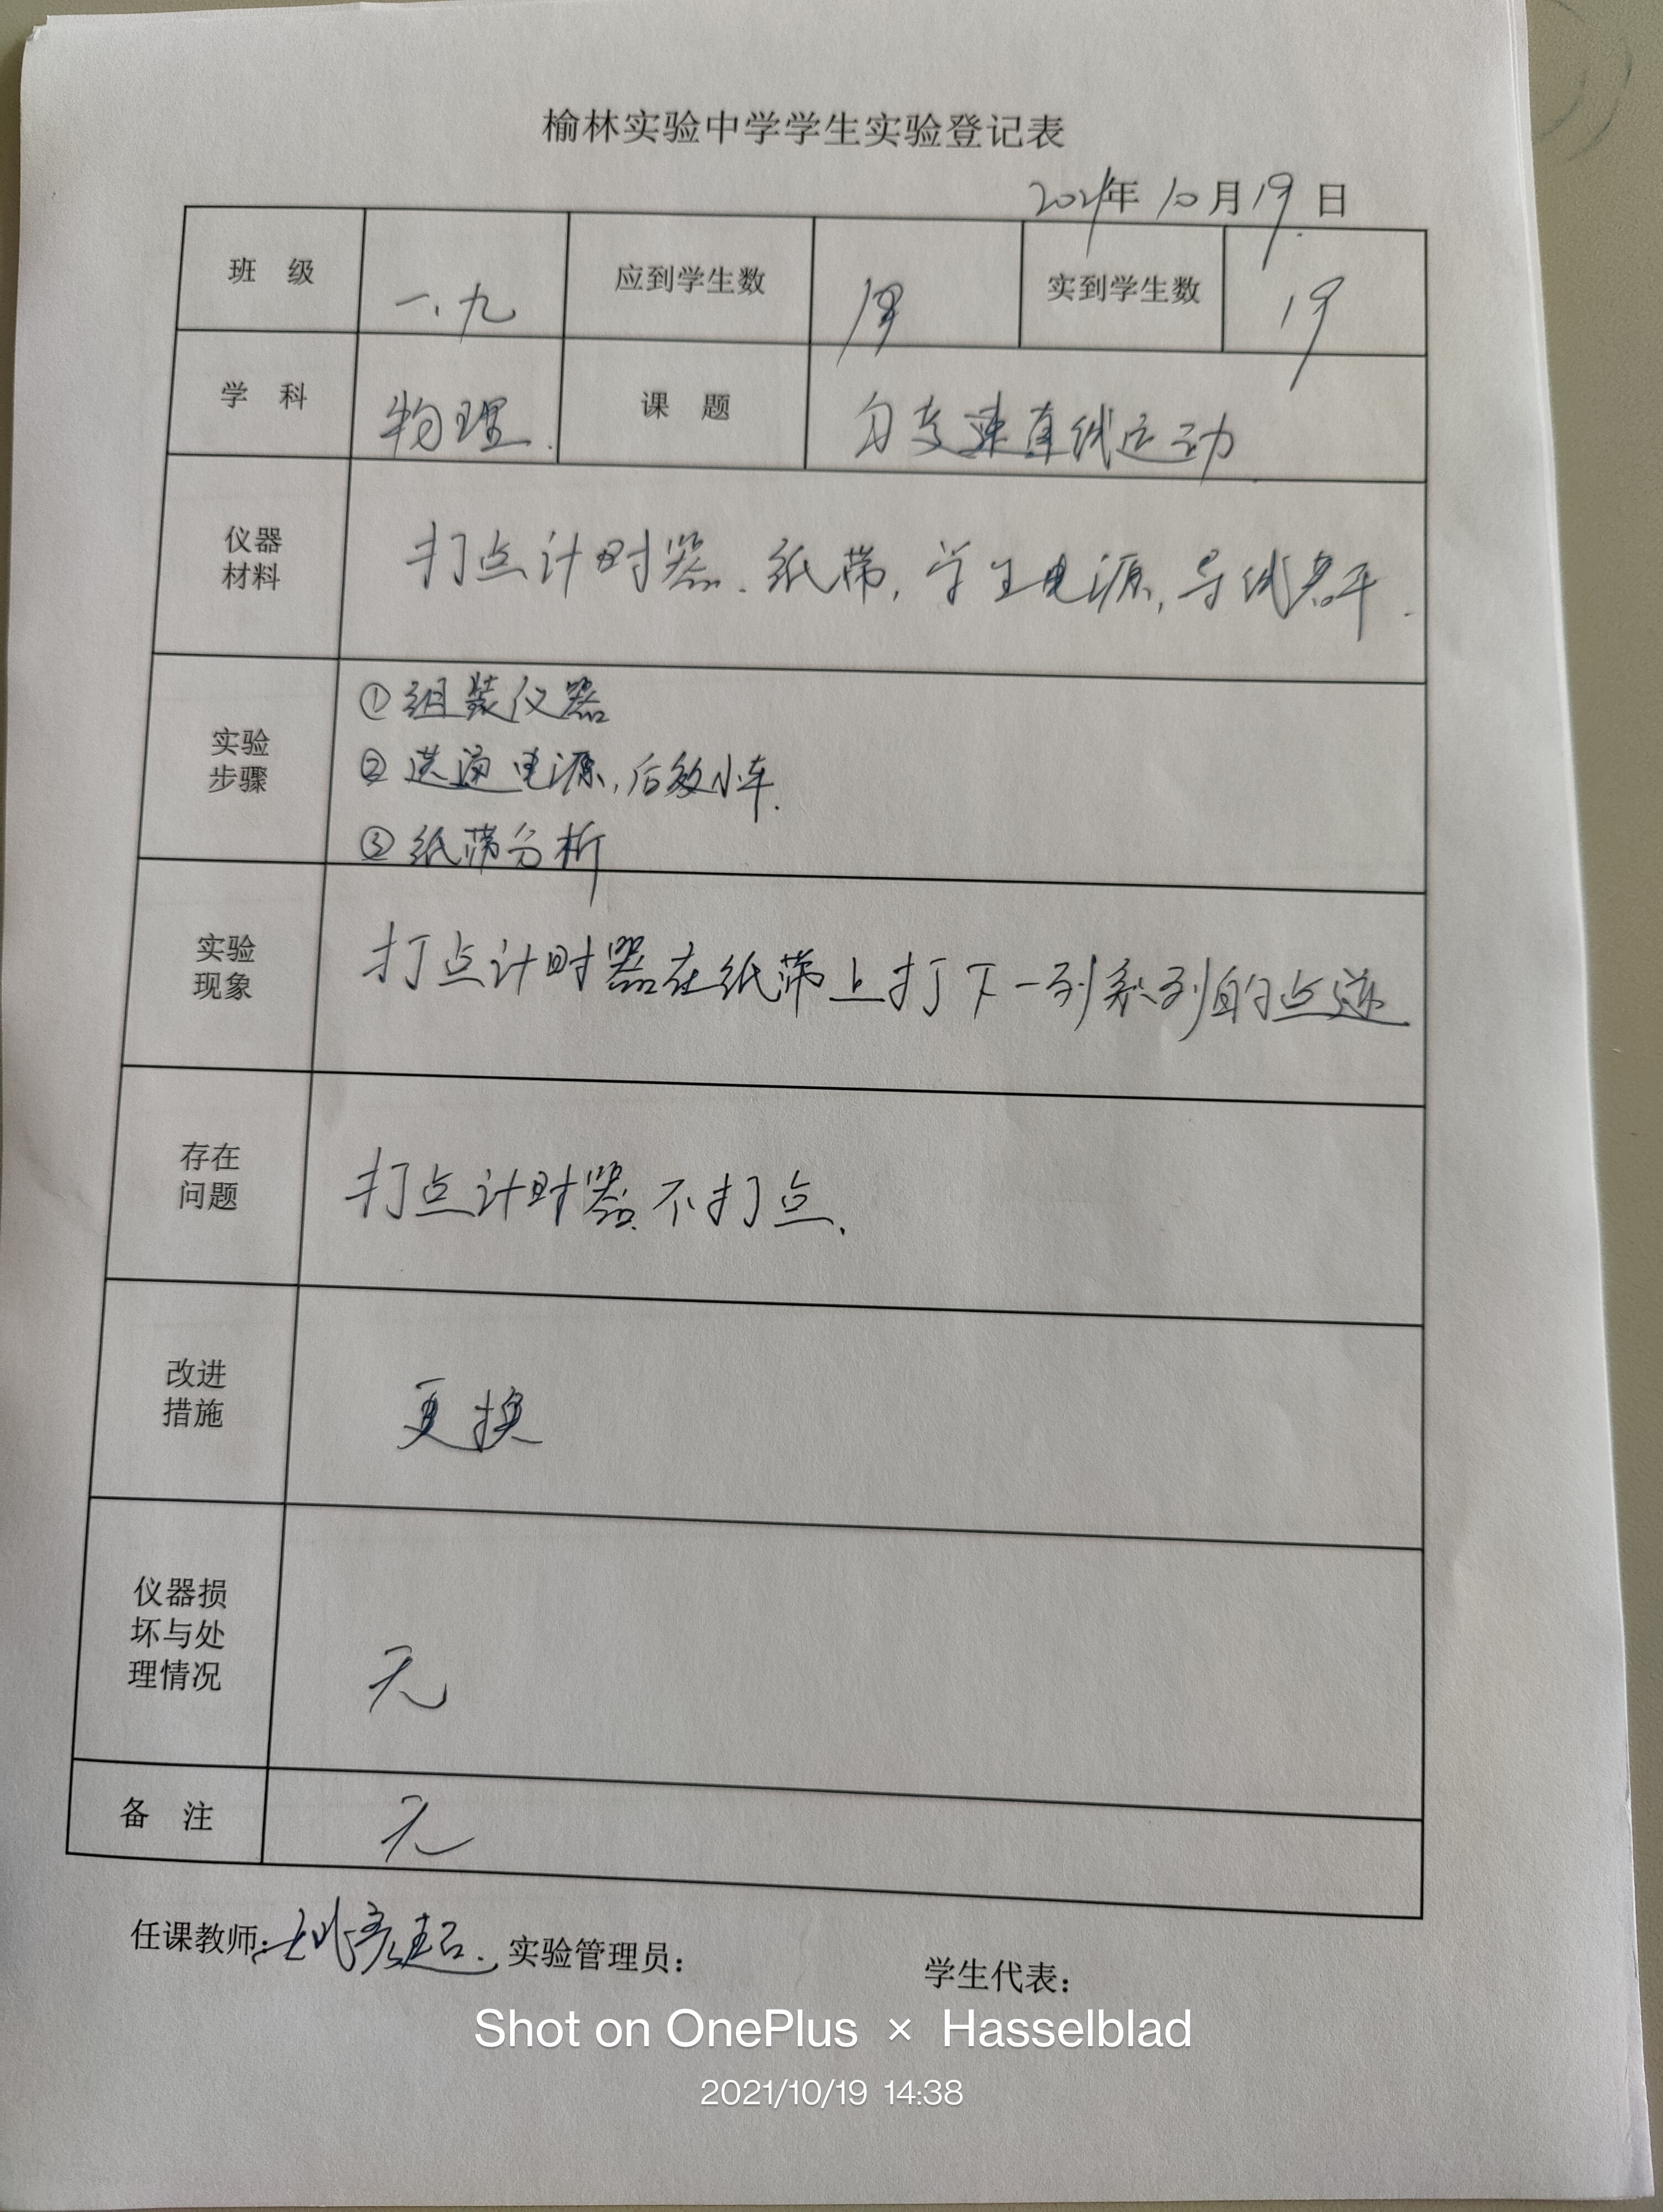 榆林实验中学学生实验登记表
2021年 10月19日
班 级 一.九 应到学生数 实到学生数 19
学 科 物理. 课 题 匀变速直线运动
仪器
材料
打点计时器.纸带,学生电源,导线若干.
实验
步骤
①组装仪器
②送通电源,后放小车.
③纸带分析
实验
现象
打点计时器在纸带上打下一列系列的点迹
存在
问题
打点计时器不打点.
改进
措施
更换
仪器损
坏与处
理情况
无
备 注 无
任课教师: 实验管理员: 学生代表:
Shot on OnePlus × Hasselblad
2021/10/19 14:38